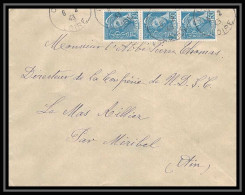 Monsieur l'Abbé Pierre Thomas
Directeur de la Confrérie de N.D.S.C.
Le Mas Rillier
Par Miribel
(Ain)